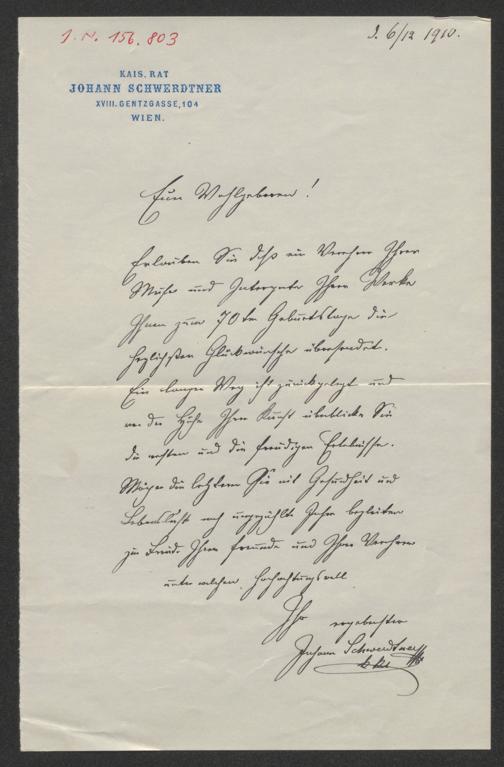 J. N. 156.803
d. 6/12 1910.
KAIS. RAT
JOHANN SCHWERDTNER
XVIII. GENTZGASSE, 104
WIEN.
Euer Wohlgeboren!
Erlauben Sie daß ein Verehrer Ihrer
Muse und Interprete Ihrer Werke
Ihnen zum 70ten Geburtstage die
herzlichsten Glückwünsche übersendet.
Ein langer Weg ist zurückgelegt und
von der Höhe Ihrer Kunst überblicken Sie
die ernsten und die freudigen Erlebnisse.
Mögen die letztern Sie mit Gesundheit und
Lebenslust noch ungezählte Jahre begleiten
zur Freude Ihrer Freunde und Ihrer Verehrer
unter welchen Hochachtungsvoll
Ihr ergebenster
Johann Schwerdtner